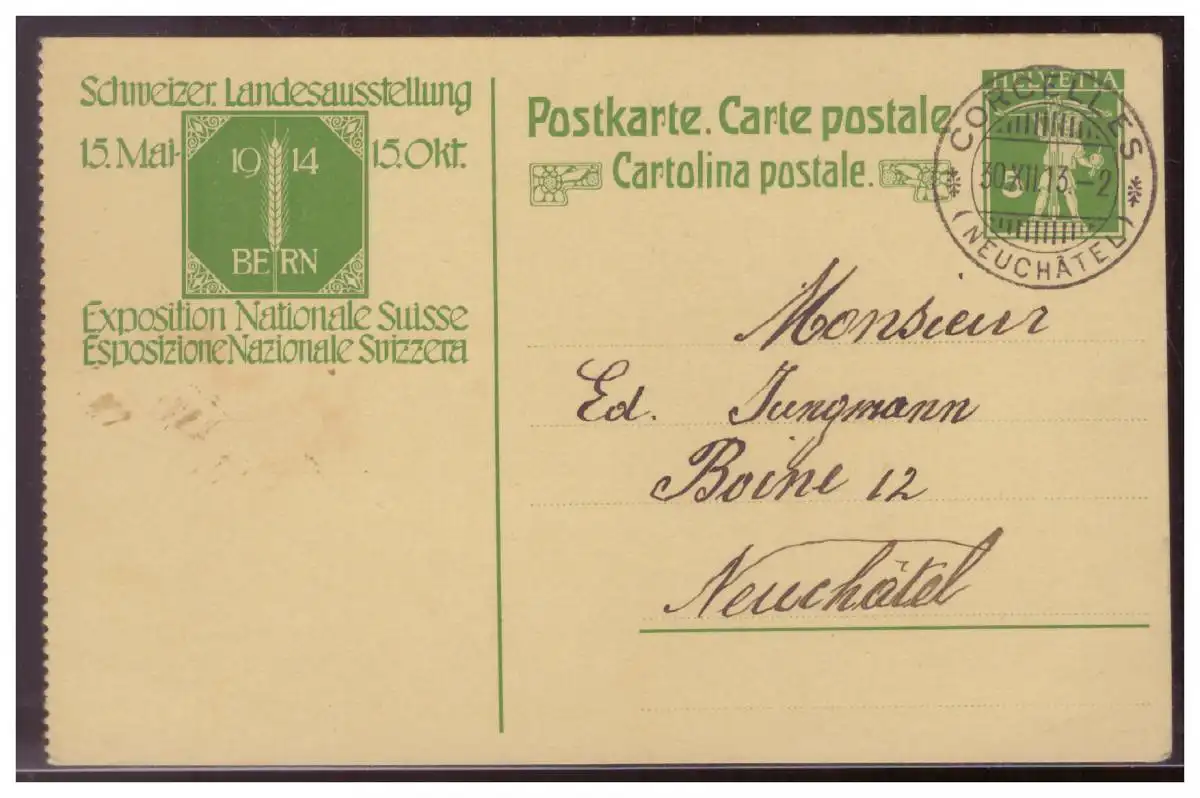 Schweizer. Landesausstellung
15. Mai- 15. Okt.
19 14
BERN
Exposition Nationale Suisse
Esposizione Nazionale Svizzera
Postkarte. Carte postale
Cartolina postale.
HELVETIA
5
CORCELLES
30.XII.13.-2
(NEUCHÂTEL)
Monsieur
Ed. Jungmann
Boine 12
Neuchâtel